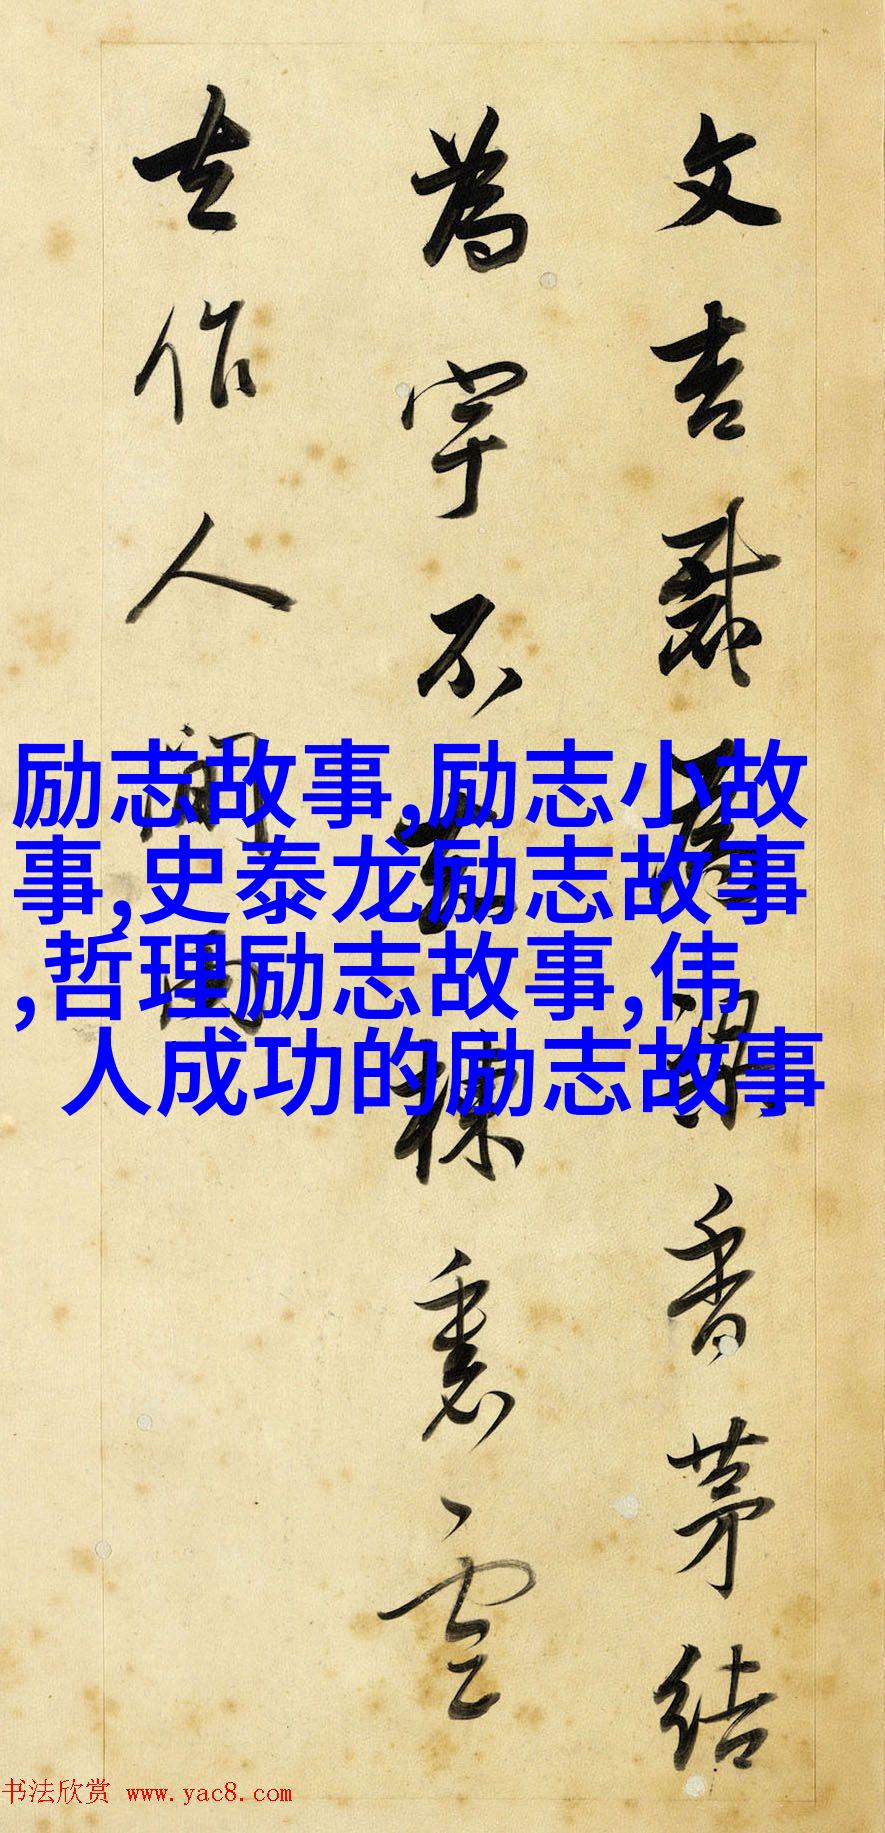 文杏裁為梁香茅結
為宇不知棟裏雲
去作人間雨
励志故事,励志小故
事,史泰龙励志故事
,哲理励志故事,伟
人成功的励志故事
书法欣赏 www.yac8.com